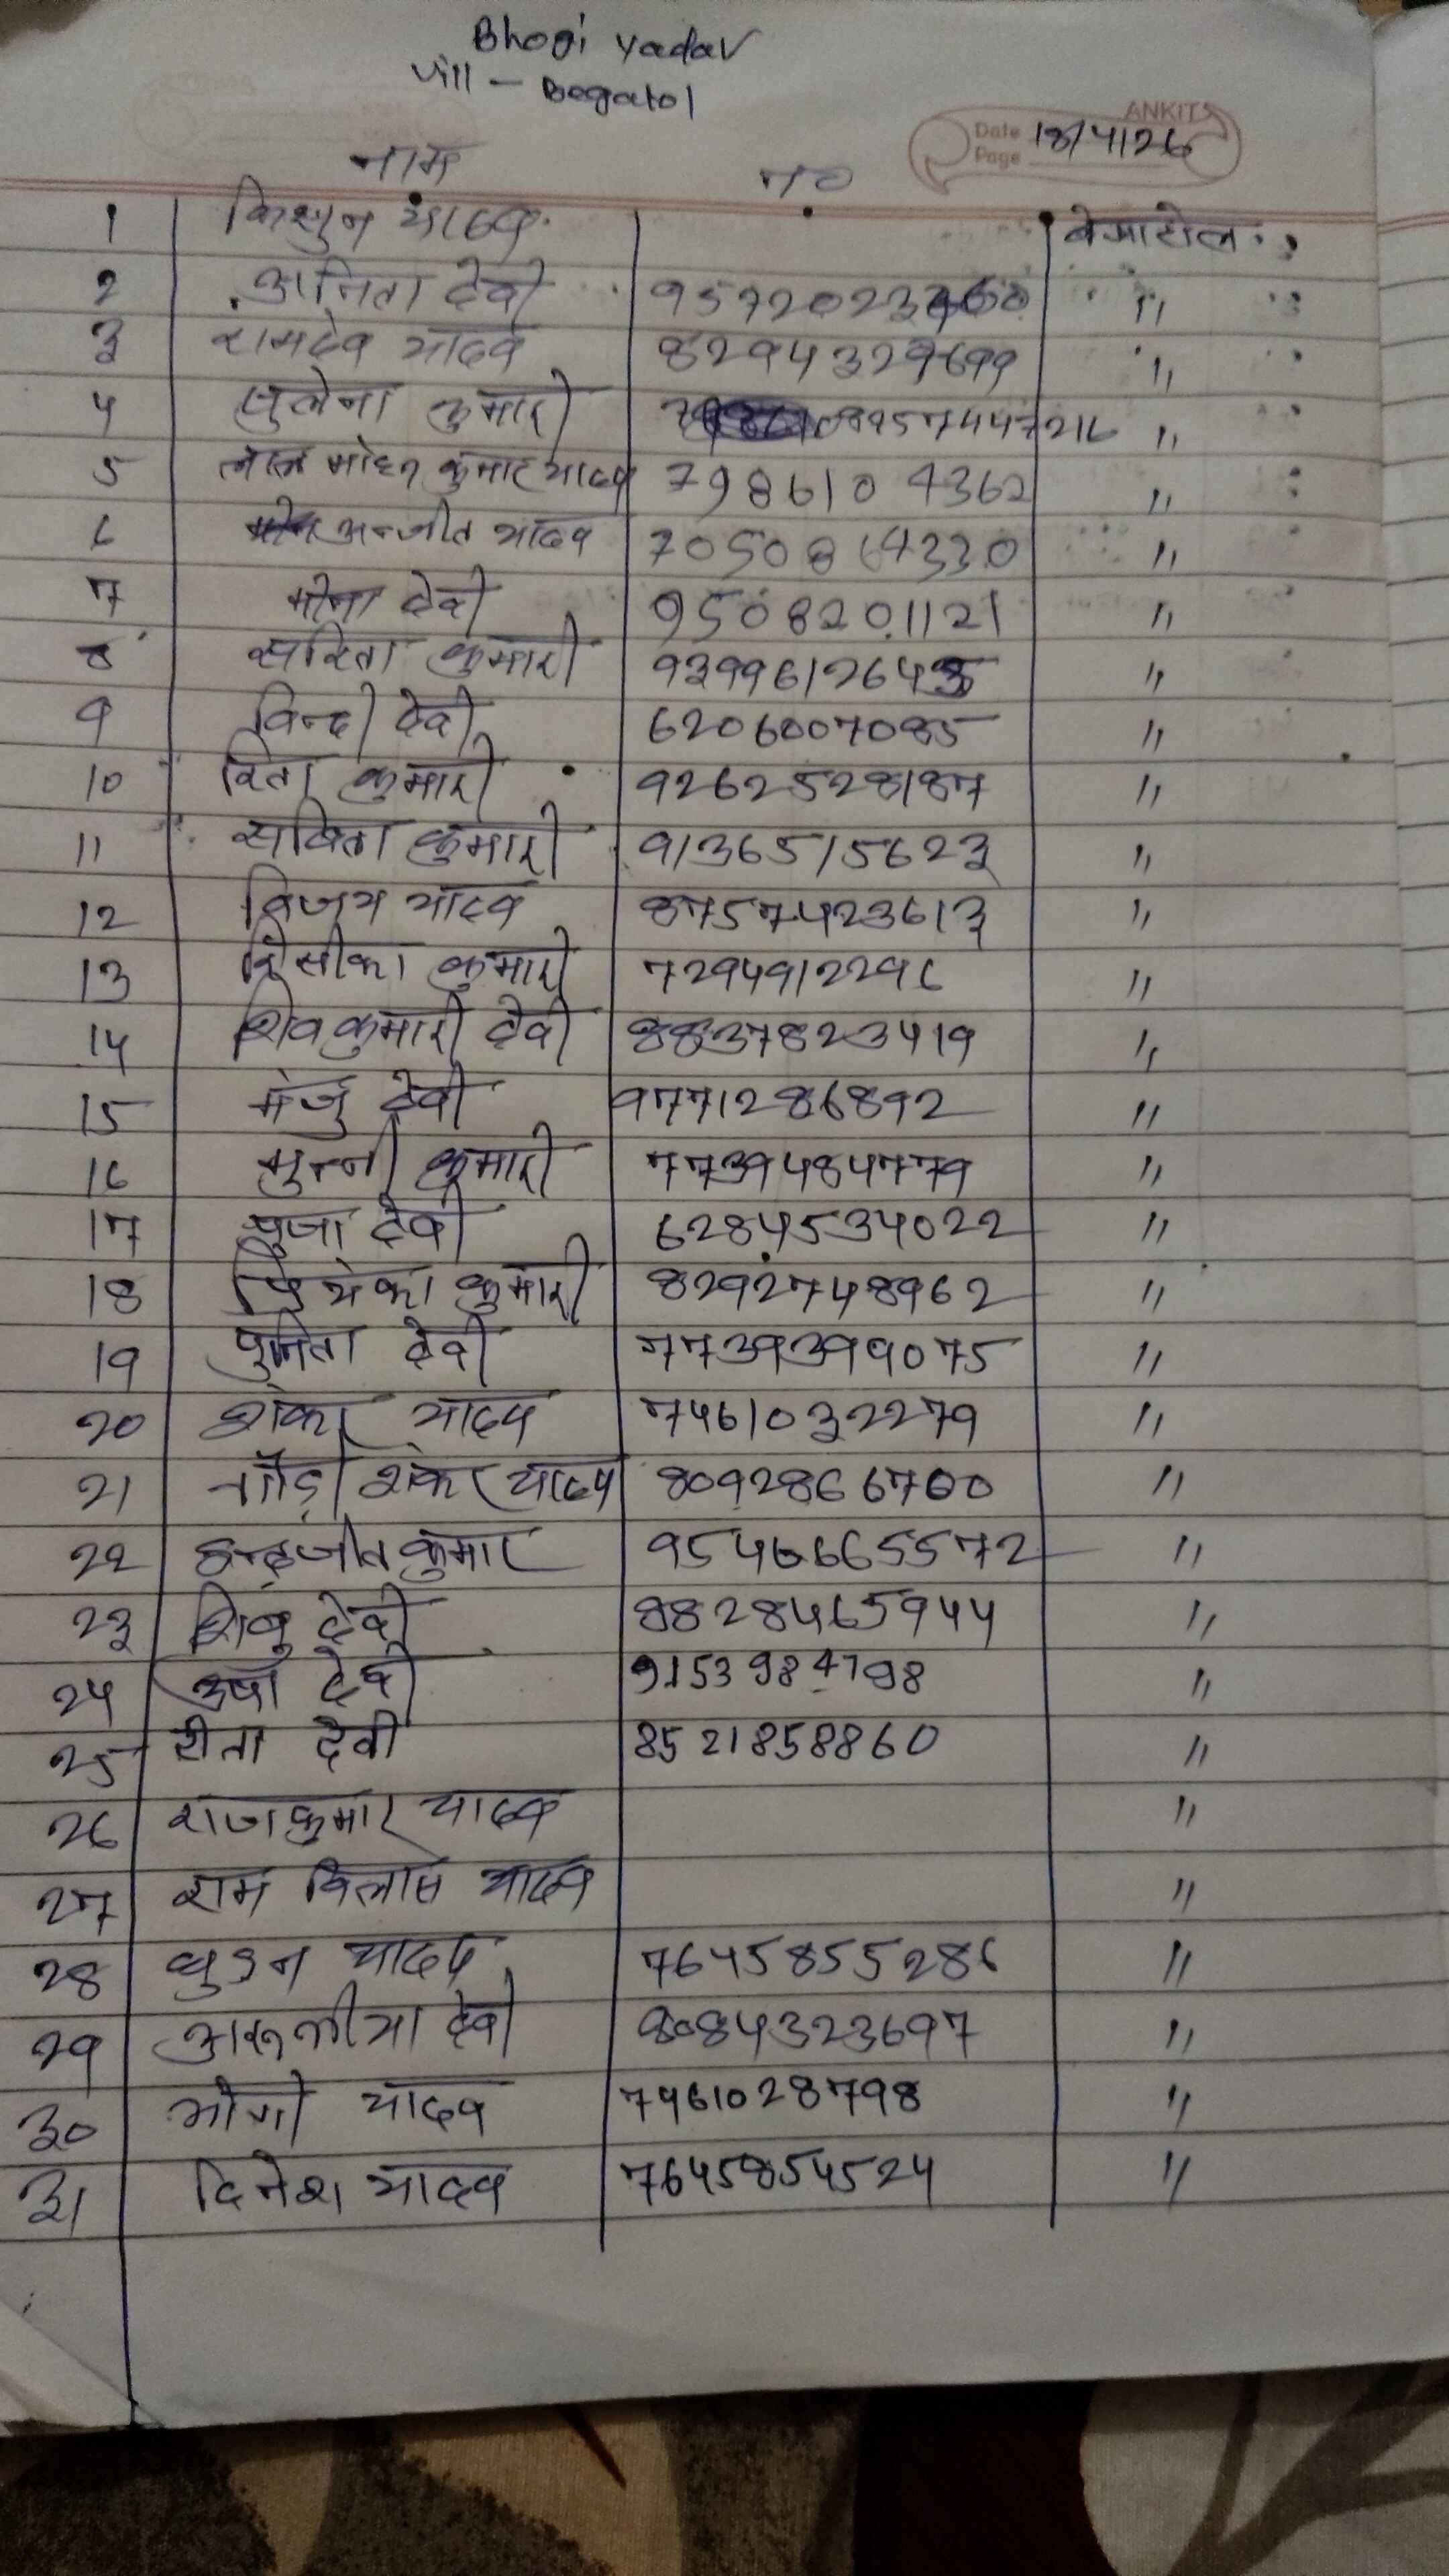 Bhogi Yadav
Vill - Begatol
ANKIT
Date 18/4/26
Page
नाम no
1 किशुन यादव बेगाटोल
2 अनिता देवी 9572023760 "
3 रामदेव यादव 8294329699 "
4 सुलेना कुमारी 8957447216 "
5 लाल मोहन कुमार यादव 7986104362 "
6 अन्जीत यादव 7050864330 "
7 मीना देवी 9508201121 "
8 सरिता कुमारी 9399612643 "
9 विन्दी देवी 6206007085 "
10 रिता कुमारी 9262528187 "
11 सविता कुमारी 9136515623 "
12 विजय यादव 8757423613 "
13 रिसीका कुमारी 7294912296 "
14 शिवकुमारी देवी 8837823419 "
15 मंजु देवी 9771286892 "
16 मुन्नी कुमारी 7739484779 "
17 पुजा देवी 6284534022 "
18 प्रियंका कुमारी 8292748962 "
19 पुनिता देवी 7739399075 "
20 शंकर यादव 7461032279 "
21 गौड़ी शंकर यादव 8092866700 "
22 इन्द्रजीत कुमार 9546665572 "
23 शिबु देवी 8828465944 "
24 उषा देवी 9153984798 "
25 रीता देवी 8521858860 "
26 राजकुमार यादव "
27 राम विलास यादव "
28 यादव 7645855286 "
29 देवी 8084323697 "
30 भोगी यादव 7461028798 "
31 दिनेश यादव 7645854524 "